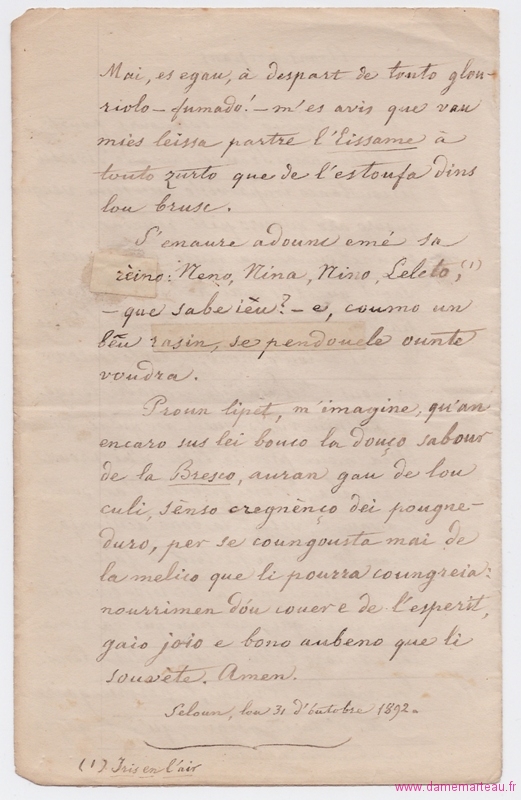 Mai, es egau, à despart de touto glou-
riolo – fumado! – m'es avis que vau
miés leissa partre l'Eissame à
touto zurto que de l'estoufa dins
lou brusc.
S'enaure adounc emé sa
rèino: Neno, Nina, Nino, Leleto, (1)
– que sabe ièu? – e, coumo un
bèu rasin, se pendouele ounte
voudra.
Proun lipet, m'imagine, qu'an
encaro sus lei bouco la douço sabour
de la Bresco, auran gau de lou
culi, sènso cregnènço dei pougne-
duro, per se coungousta mai de
la melico que li pourra coungreia:
nourrimen dóu couer e de l'esperit,
gaio joio e bono aubeno que li
souvète. Amen.
Seloun, lou 31 d'outobre 1892.
(1) Iris en l'air
www.damemarteau.fr